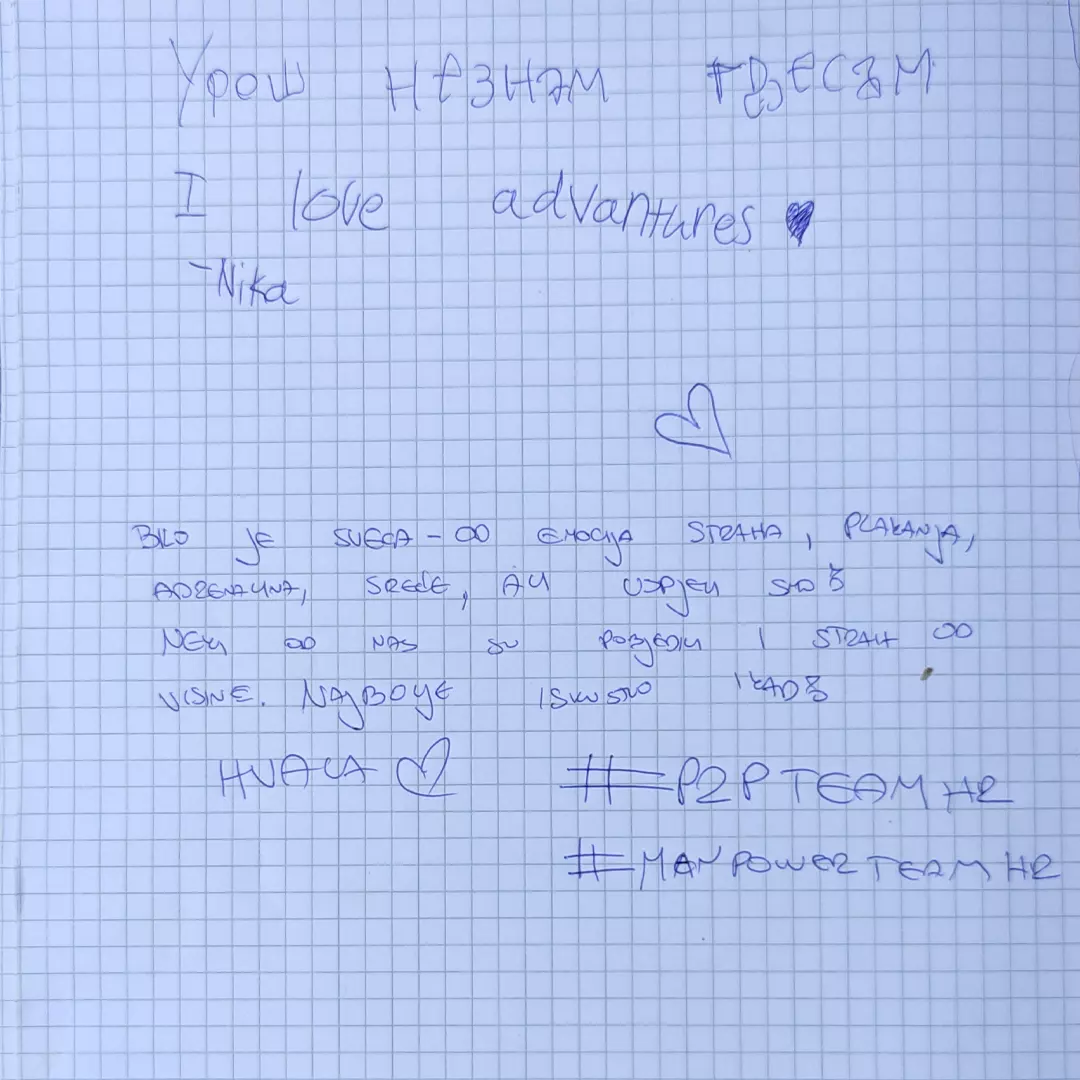 Урош незнам гдјесам
I love advantures
-Nika
BILO JE SVEGA - OD EMOCIJA STRAHA, PLAKANJA,
ADRENALINA, SREĆE, ALI USPJELI SMO!
NEKI OD NAS SU POBJEDILI I STRAH OD
VISINE. NAJBOLJE ISKUSTVO IKAD!
HVALA
#P2P TEAM HR
#MANPOWER TEAM HR